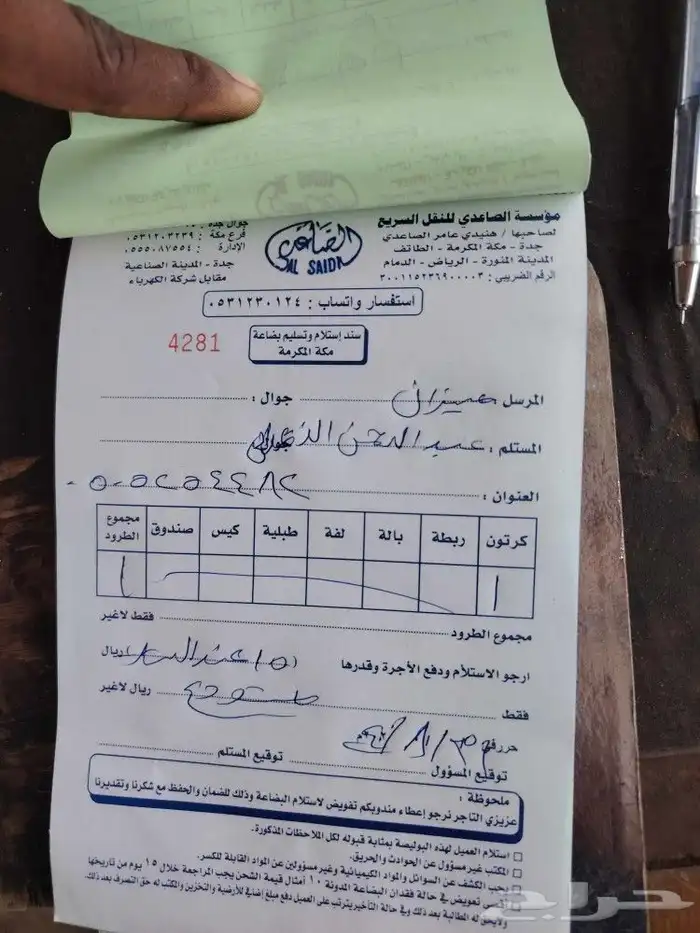 مؤسسة الصاعدي للنقل السريع
لصاحبها / هنيدي عامر الصاعدي
جدة - مكة المكرمة - الطائف
المدينة المنورة - الرياض - الدمام
الرقم الضريبي : ٣٠٠١١٥٢٣٦٩٠٠٠٠٣
الصاعدي
AL SAIDI
جوال جدة :
فرع مكة : ٠٥٣١٢٠٣٢٣٩
الإدارة : ٠٥٥٥٠٨٧٥٥٤
جدة - المدينة الصناعية
مقابل شركة الكهرباء
استفسار واتساب : ٠٥٣١٢٣٠١٢٤
سند إستلام وتسليم بضاعة
مكة المكرمة
4281
المرسل جوال :
المستلم : عبد الرحمن جوال
العنوان : ٠٥٠٥٢٥٤٤٨٢
كرتون ربطة بالة لفة طبلية كيس صندوق مجموع الطرود
١ ١
مجموع الطرود فقط لاغير
ارجو الاستلام ودفع الأجرة وقدرها ريال
فقط مدفوع ريال لاغير
حرر في
توقيع المسؤول توقيع المستلم
ملحوظة :
عزيزي التاجر نرجو إعطاء مندوبكم تفويض لاستلام البضاعة وذلك للضمان والحفظ مع شكرنا وتقديرنا
استلام العميل لهذه البوليصة بمثابة قبوله لكل الملاحظات المذكورة.
المكتب غير مسؤول عن الحوادث والحريق.
يجب الكشف عن السوائل والمواد الكيميائية وغير مسؤولين عن المواد القابلة للكسر.
أقصى تعويض في حالة فقدان البضاعة المدونة ١٠ أمثال قيمة الشحن يجب المراجعة خلال ١٥ يوم من تاريخها
ولايحق له المطالبة بعد ذلك وفي حالة التأخير يترتب على العميل دفع مبلغ إضافي للأرضية والتخزين والمكتب له حق التصرف بعد ذلك.
حراج